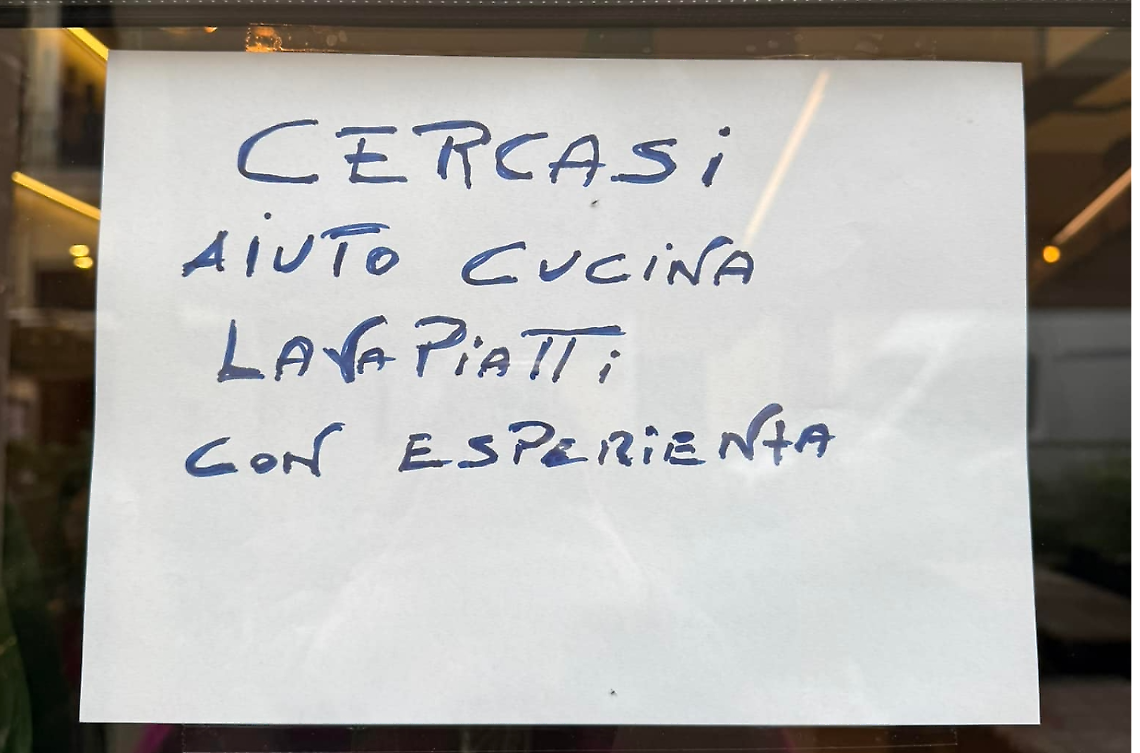 CERCASi
AiUTO CUCiNA
LAVAPiATTi
CON ESPERiENZA